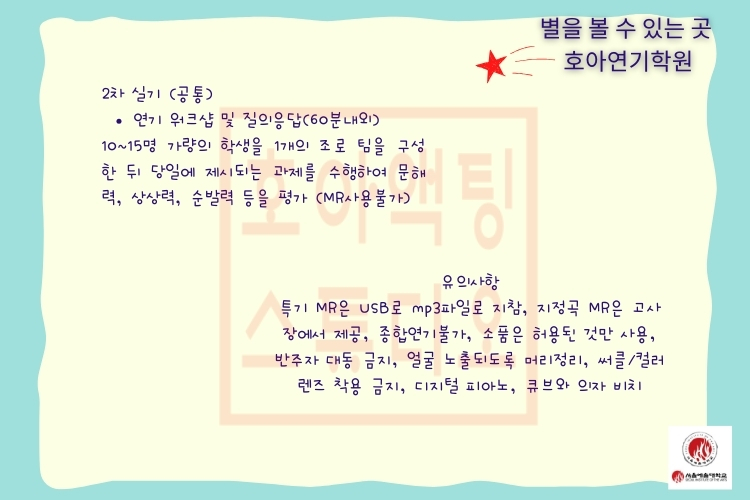 별을 볼 수 있는 곳
호아연기학원
2차 실기 (공통)
• 연기 워크샵 및 질의응답(60분내외)
10~15명 가량의 학생을 1개의 조로 팀을 구성
한 뒤 당일에 제시되는 과제를 수행하여 문해
력, 상상력, 순발력 등을 평가 (MR사용불가)
호아액팅
스튜디오
유의사항
특기 MR은 USB로 mp3파일로 지참, 지정곡 MR은 고사
장에서 제공, 종합연기불가, 소품은 허용된 것만 사용,
반주자 대동 금지, 얼굴 노출되도록 머리정리, 써클/컬러
렌즈 착용 금지, 디지털 피아노, 큐브와 의자 비치
서울예술대학교
SEOUL INSTITUTE OF THE ARTS